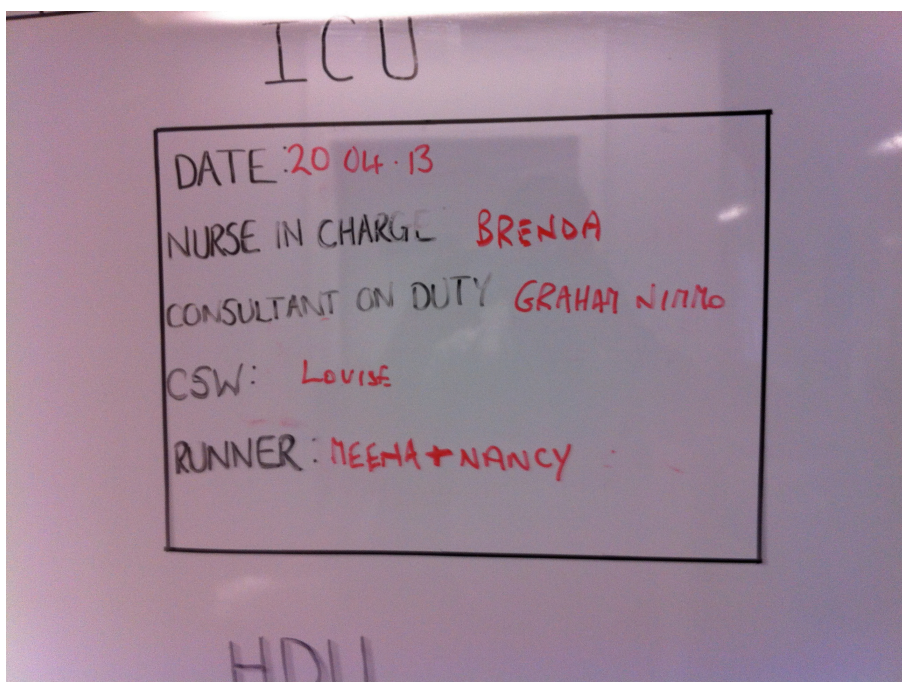 ICU
DATE: 20 04.13
NURSE IN CHARGE BRENDA
CONSULTANT ON DUTY GRAHAM NIMMO
CSW: LOUISE
RUNNER: MEENA + NANCY
HDU